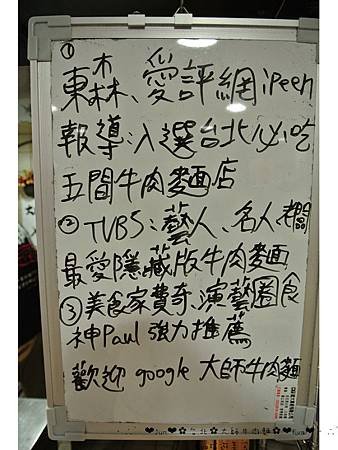 ①
東森、愛評網iPeen
報導:入選台北必吃
五間牛肉麵店
②TVBS:藝人、名人、老闆
最愛隱藏版牛肉麵
③美食家費奇、演藝圈食
神Paul強力推薦
歡迎 google 大師牛肉麵